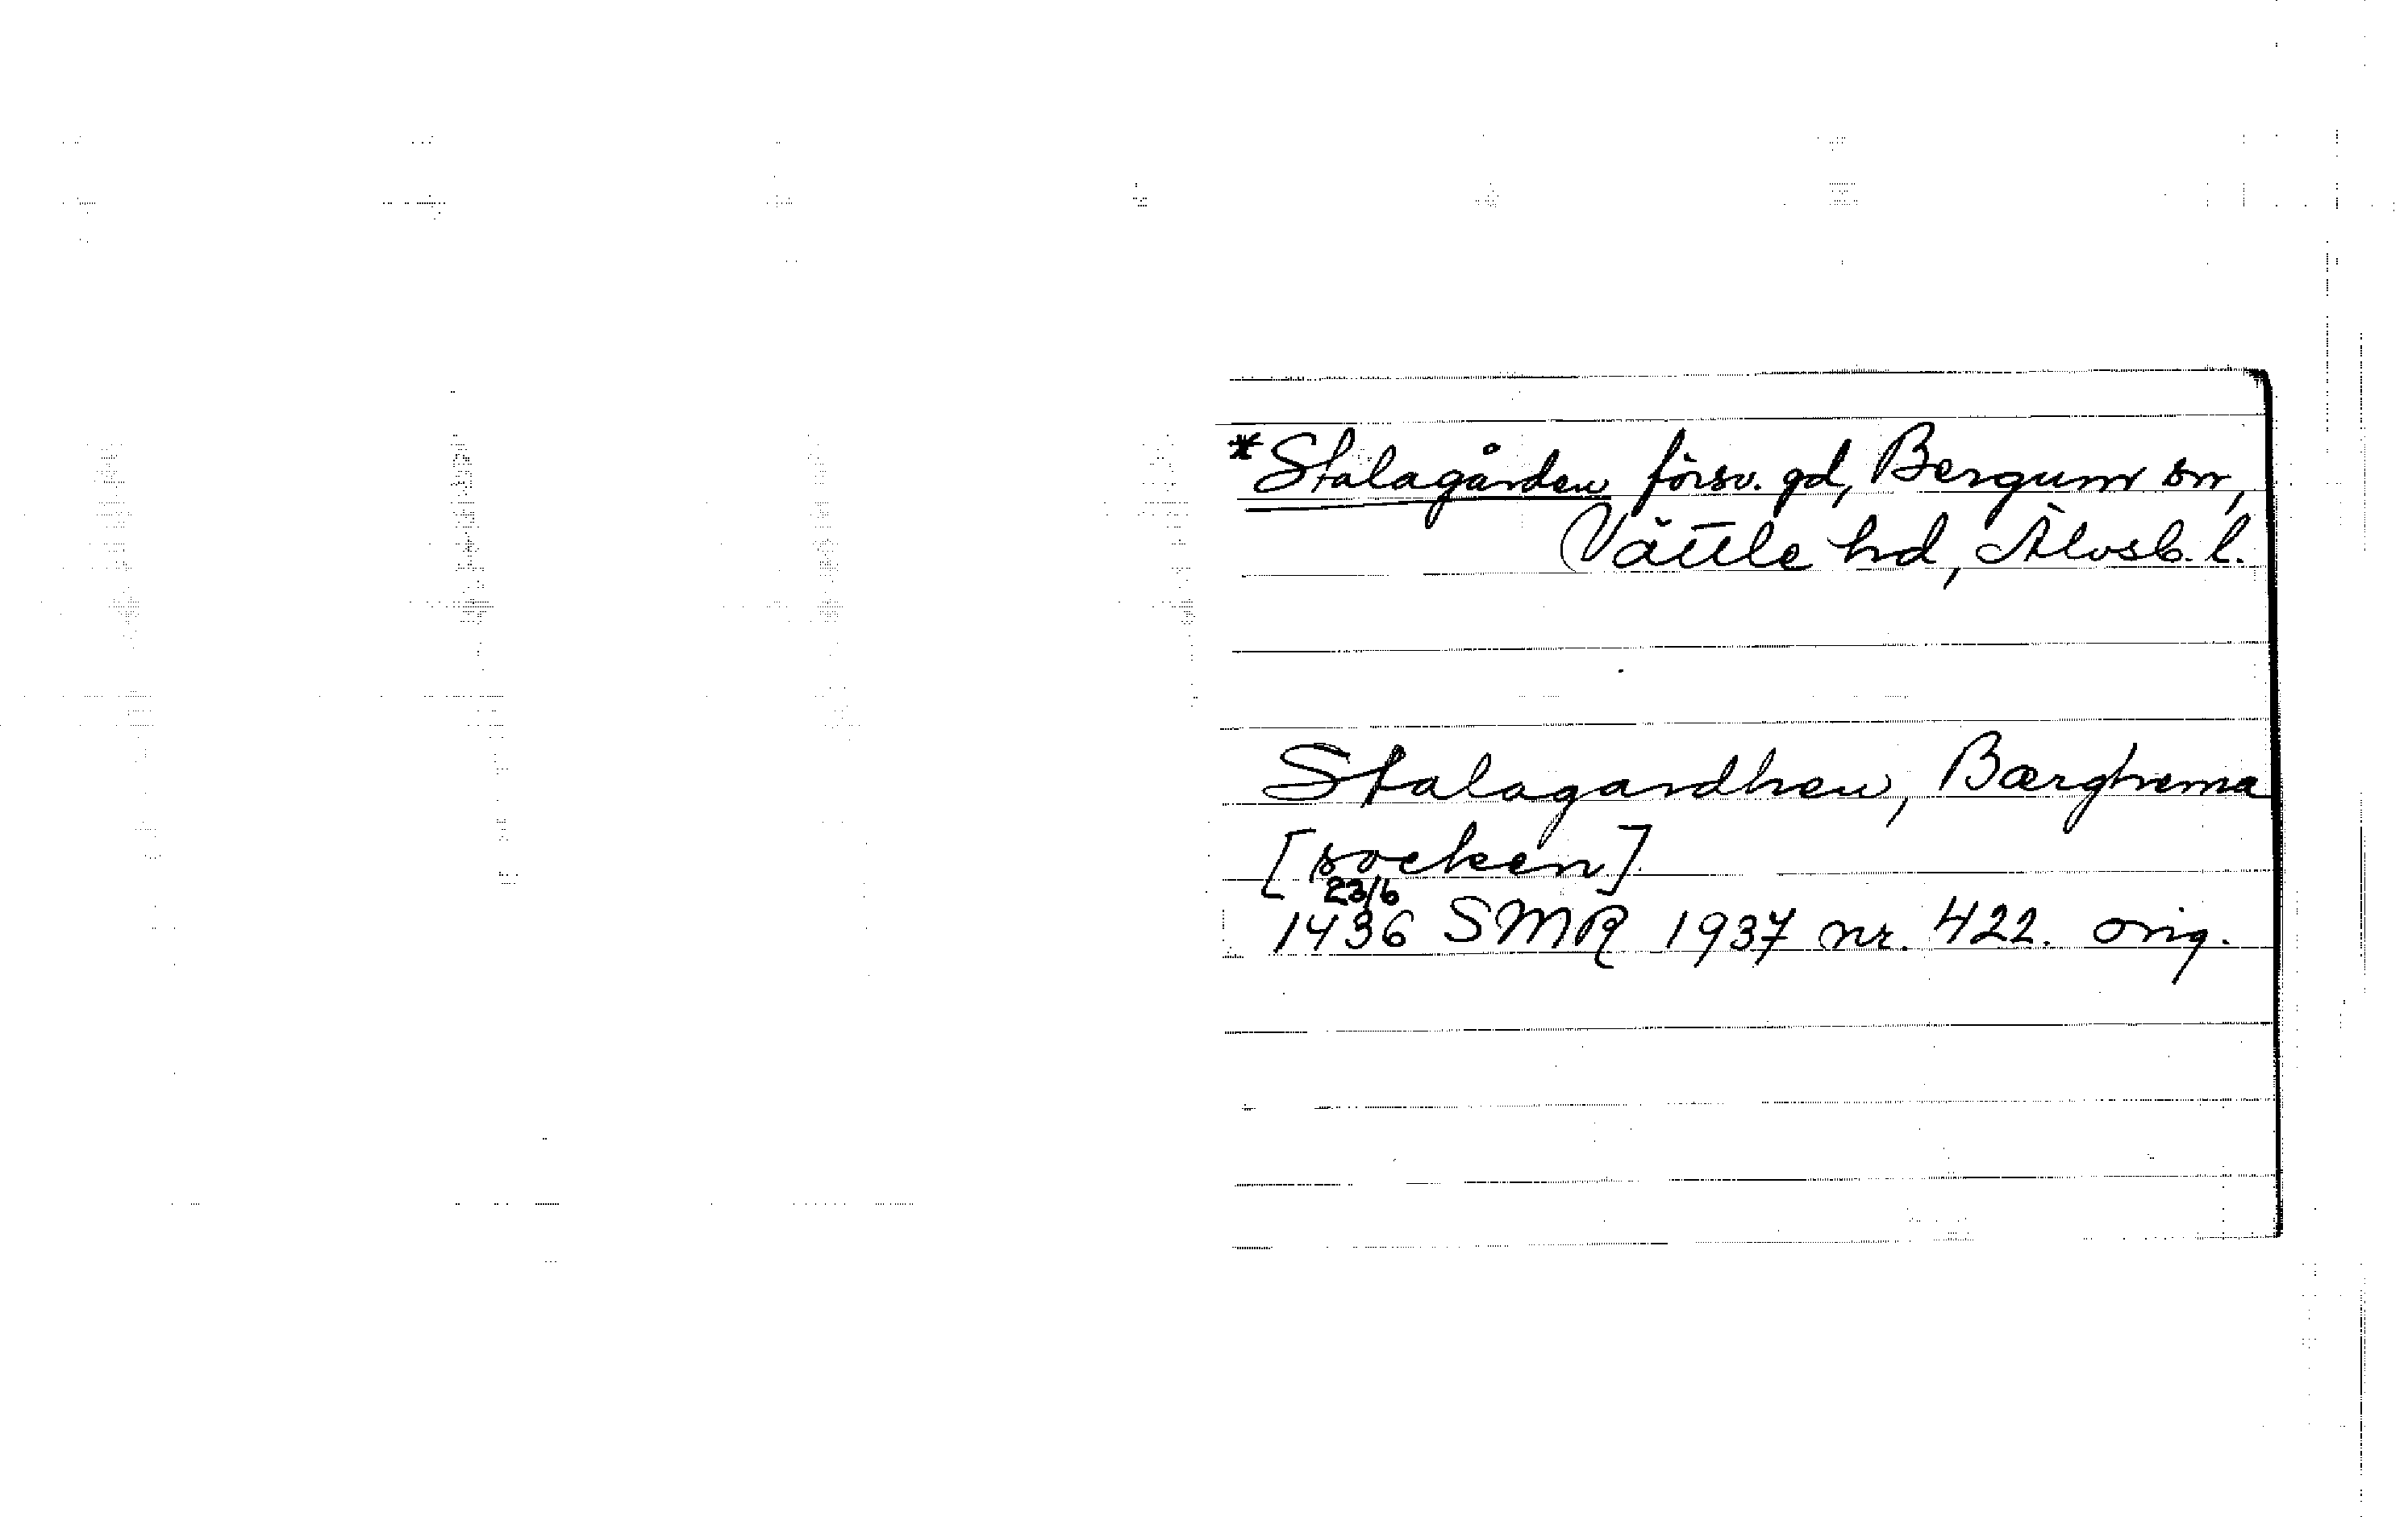 *Stalagården försv. gd, Bergum sn,
Vättle hd, Älvsb. l.
Stalagardhen, Bærghema
[socken]
23/6
1436 SMR 1937 nr. 422. orig.